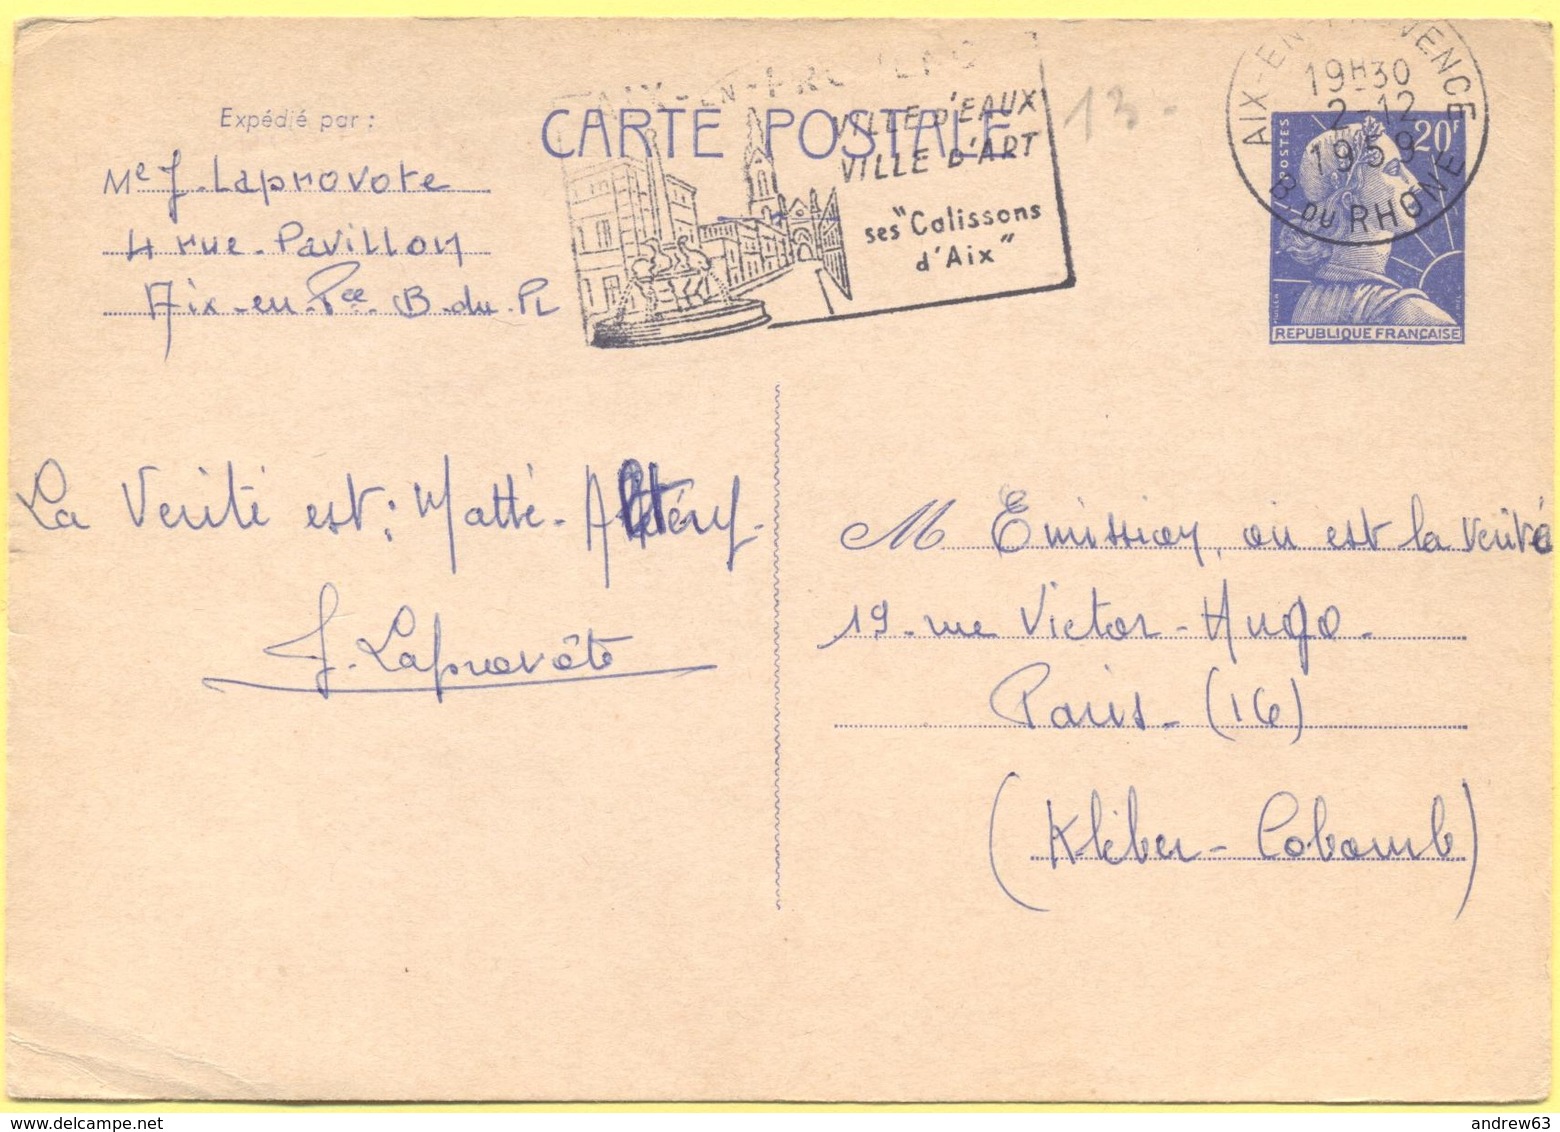 Expédié par :
Me J. Laprovote
4 rue. Pavillon
Aix-en-Pce B-du-R
CARTE POSTALE
AIX-EN-PROVENC
VILLE D'EAUX
VILLE D'ART
ses "Calissons
d'Aix"
13-
AIX-EN-PROVENCE
19H30
2-12
1959
B DU RHONE
POSTES
20F
MULLER
REPUBLIQUE FRANÇAISE
La Verité est: Matté-
J. Laprovôte
M Emission, où est la verité
19-rue Victor-Hugo.
Paris-(16)
(Kléber-Colomb)
andrew63